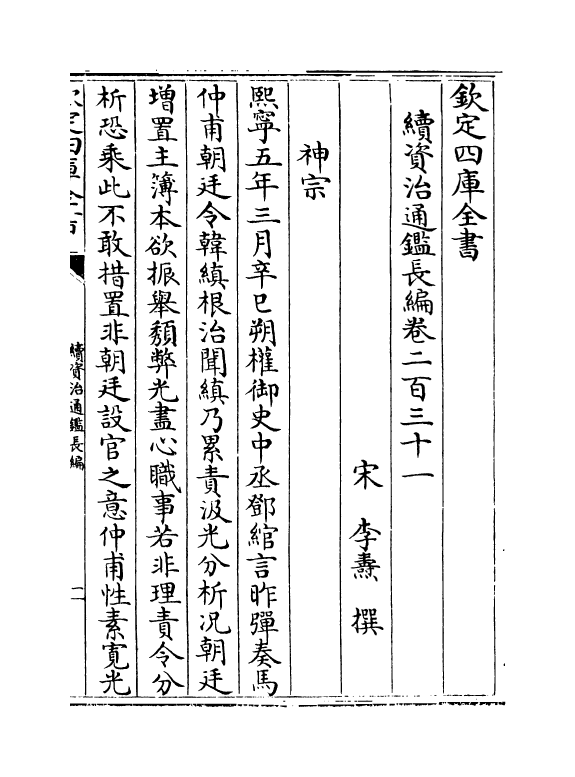 欽定四庫全書
續資治通鑑長編卷二百三十一
宋　李燾　撰
神宗
熙寧五年三月辛巳朔權御史中丞鄧綰言昨彈奏馬
仲甫朝廷令韓縝根治聞縝乃累責汲光分析况朝廷
增置主簿本欲振舉頽弊光盡心職事若非理責令分
析恐乘此不敢措置非朝廷設官之意仲甫性素寛光
續資治通鑑長編